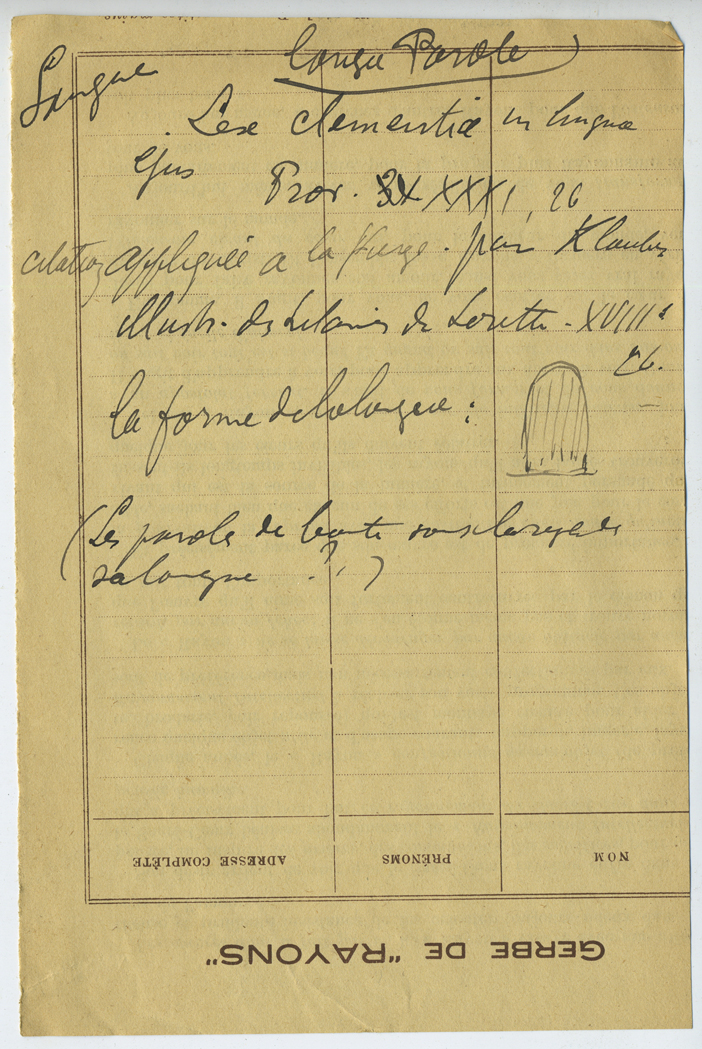 Langue
Langue Parole
Lex clementiæ in lingua
ejus Prov. XXXI, 26
citation appliquée a la Vierge. par Klauber
illustr. des Litanies de Lorette - XVIIIe
la forme de la langue :
(Les paroles de bonté sous la
sa langue . ? . )
NOM PRÉNOMS ADRESSE COMPLÈTE
GERBE DE "RAYONS"